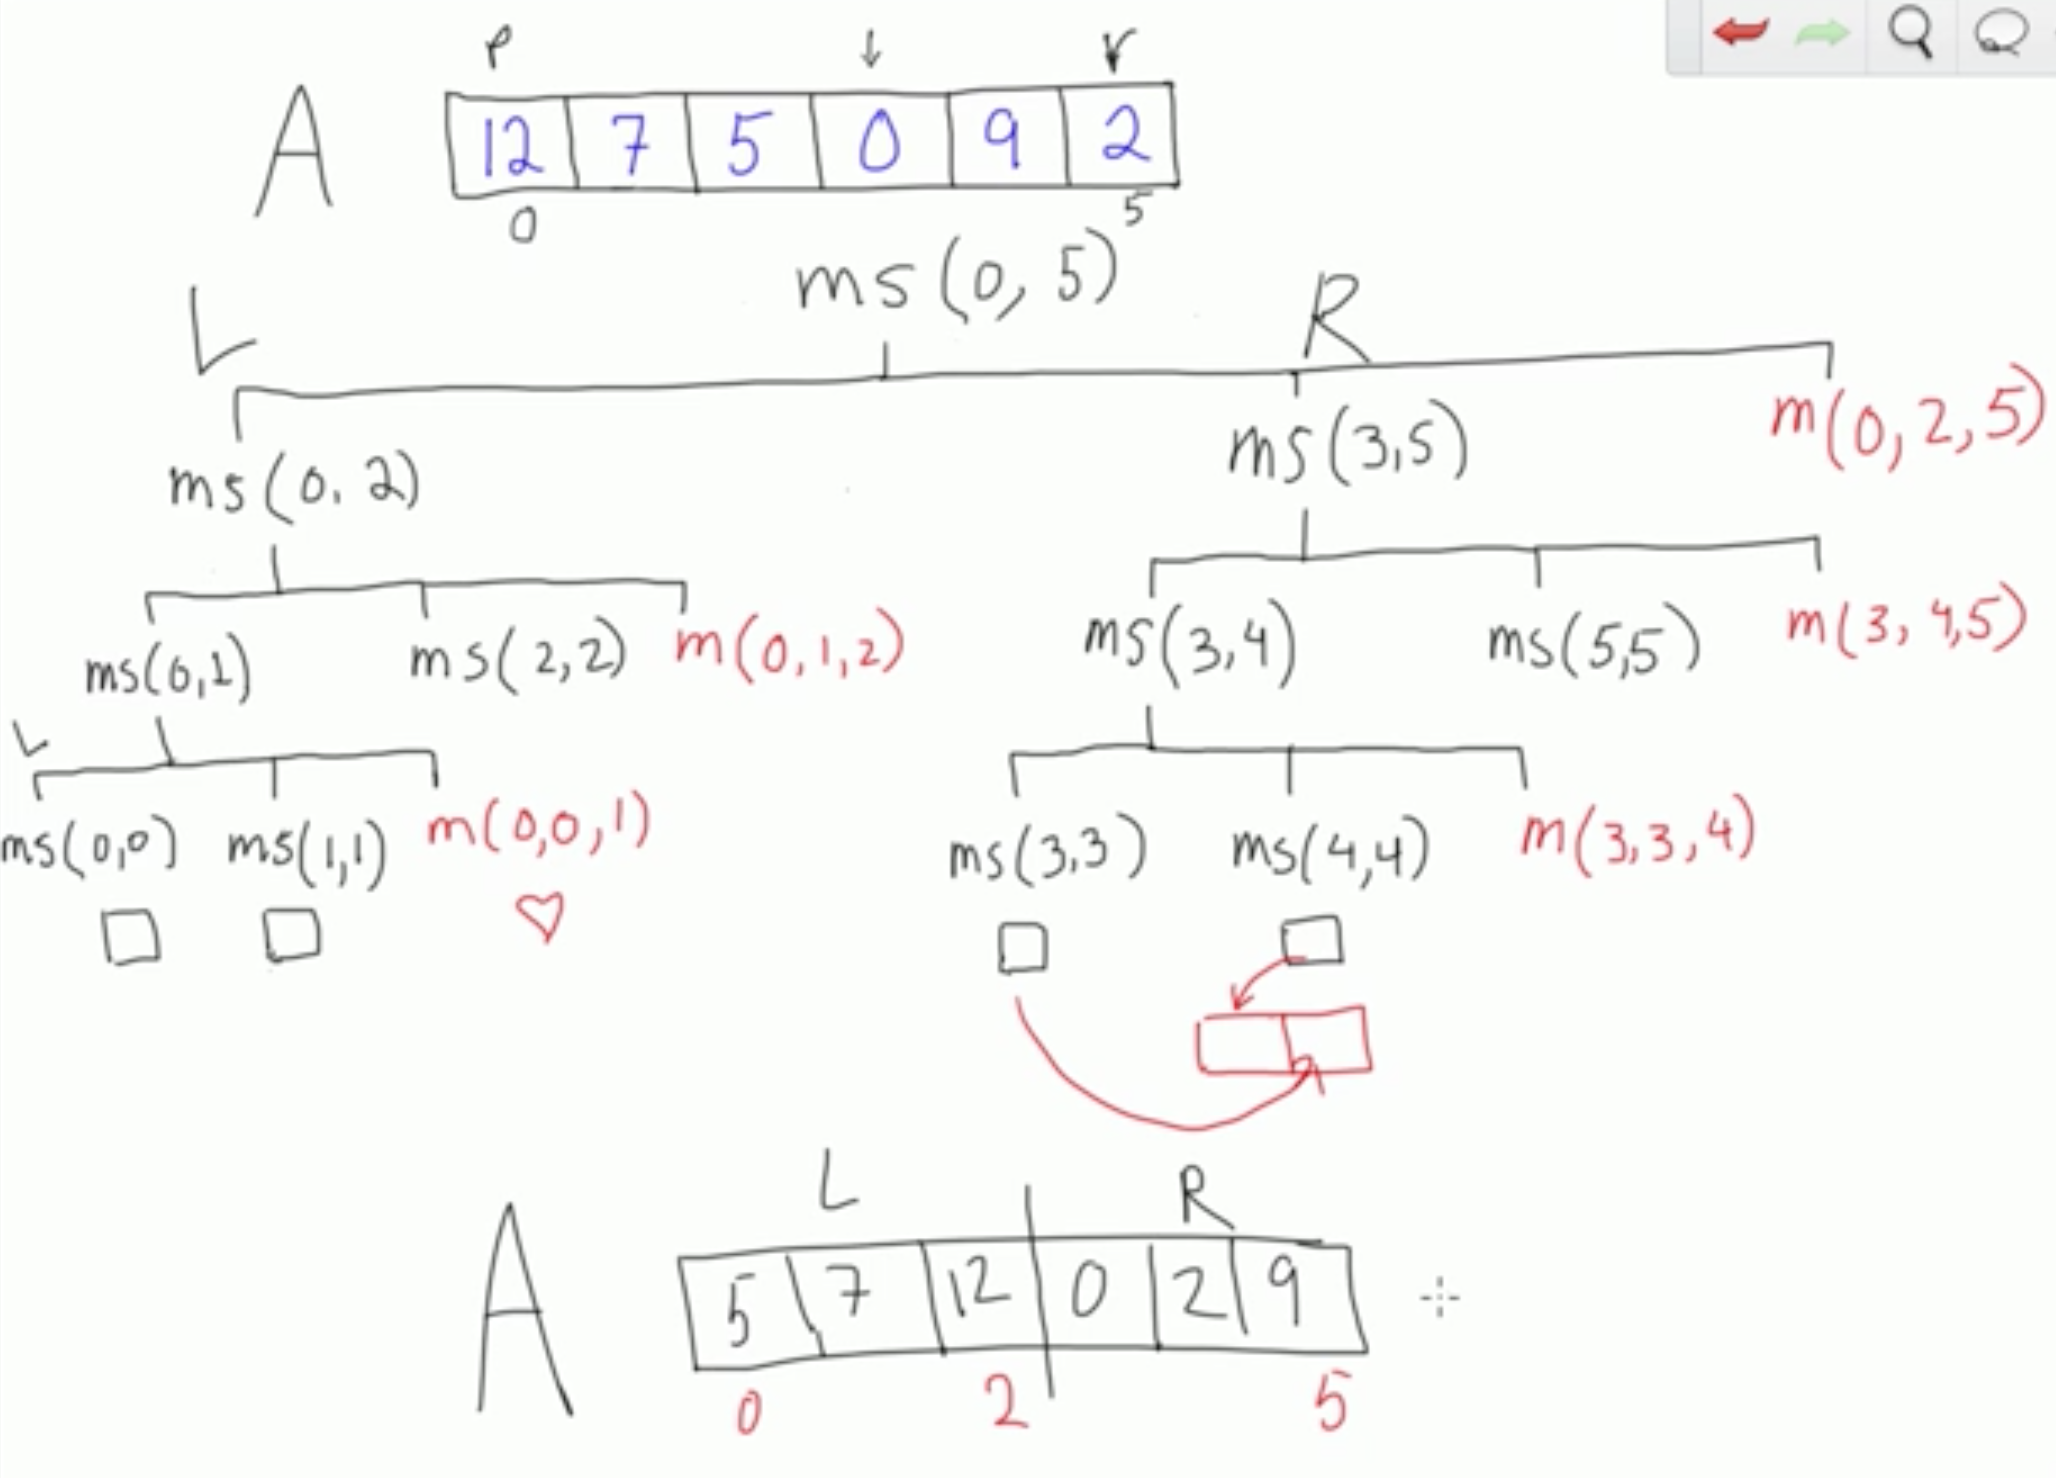 p ↓ r
A 12 7 5 0 9 2
0 5
ms(0, 5)
L R
ms(0, 2) ms(3,5) m(0, 2, 5)
ms(0,1) ms(2,2) m(0,1,2) ms(3,4) ms(5,5) m(3, 4,5)
L
ms(0,0) ms(1,1) m(0,0,1) ms(3,3) ms(4,4) m(3,3,4)
L R
A 5 7 12 0 2 9
0 2 5